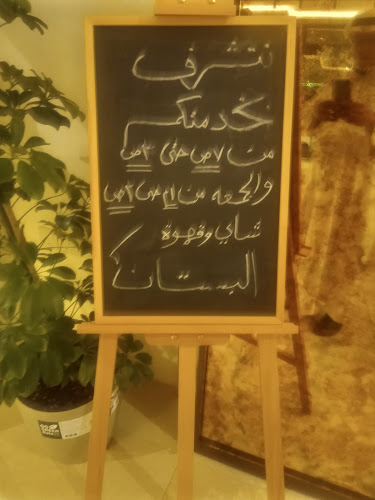 نتشرف
بخدمتكم
من ٧ص حتى ٣ص
والجمعه من ١م ص ٣ص
شاي وقهوة
البستان